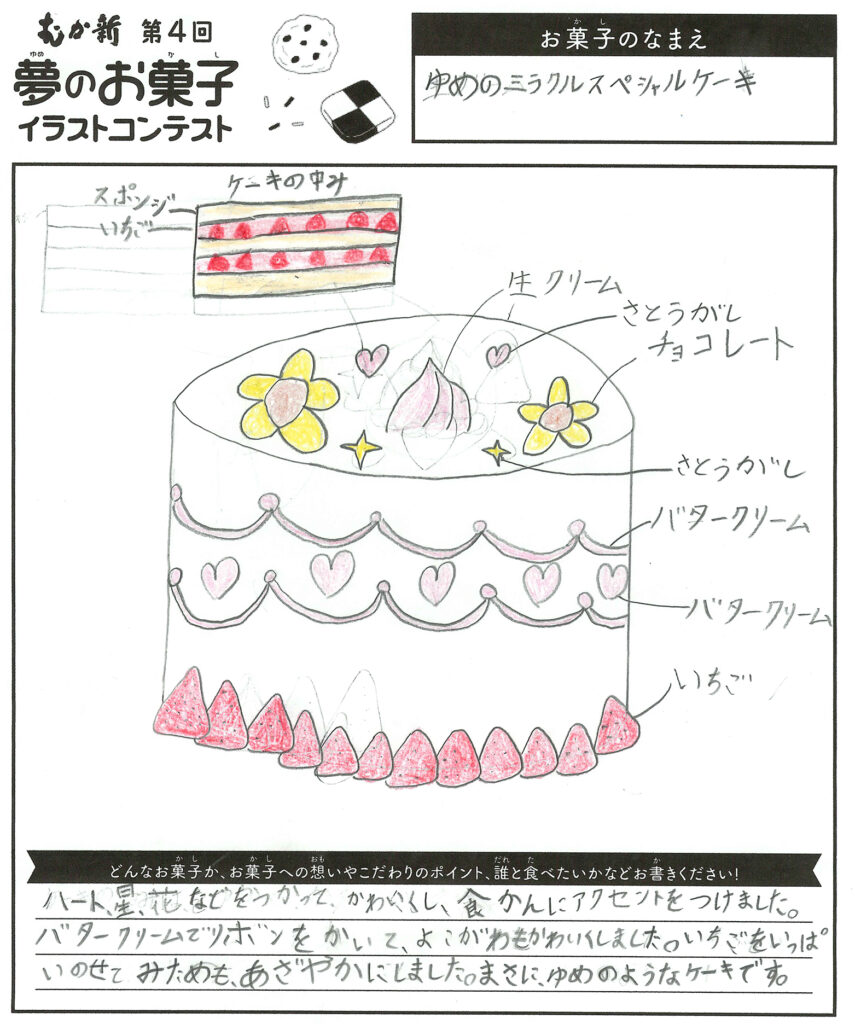 むか新 第4回
ゆめ か し
夢のお菓子
イラストコンテスト
か し
お菓子のなまえ
ゆめのミラクルスペシャルケーキ
ケーキの中み
スポンジ
いちご
生クリーム
さとうがし
チョコレート
さとうがし
バタークリーム
バタークリーム
いちご
か し か し おも だれ た か
どんなお菓子か、お菓子への想いやこだわりのポイント、誰と食べたいかなどお書きください!
ハート、星、花などをつかって、かわいくし、食かんにアクセントをつけました。
バタークリームでリボンをかいて、よこがわもかわいくしました。いちごをいっぱ
いのせて みためも、あざやかにしました。まさに、ゆめのようなケーキです。